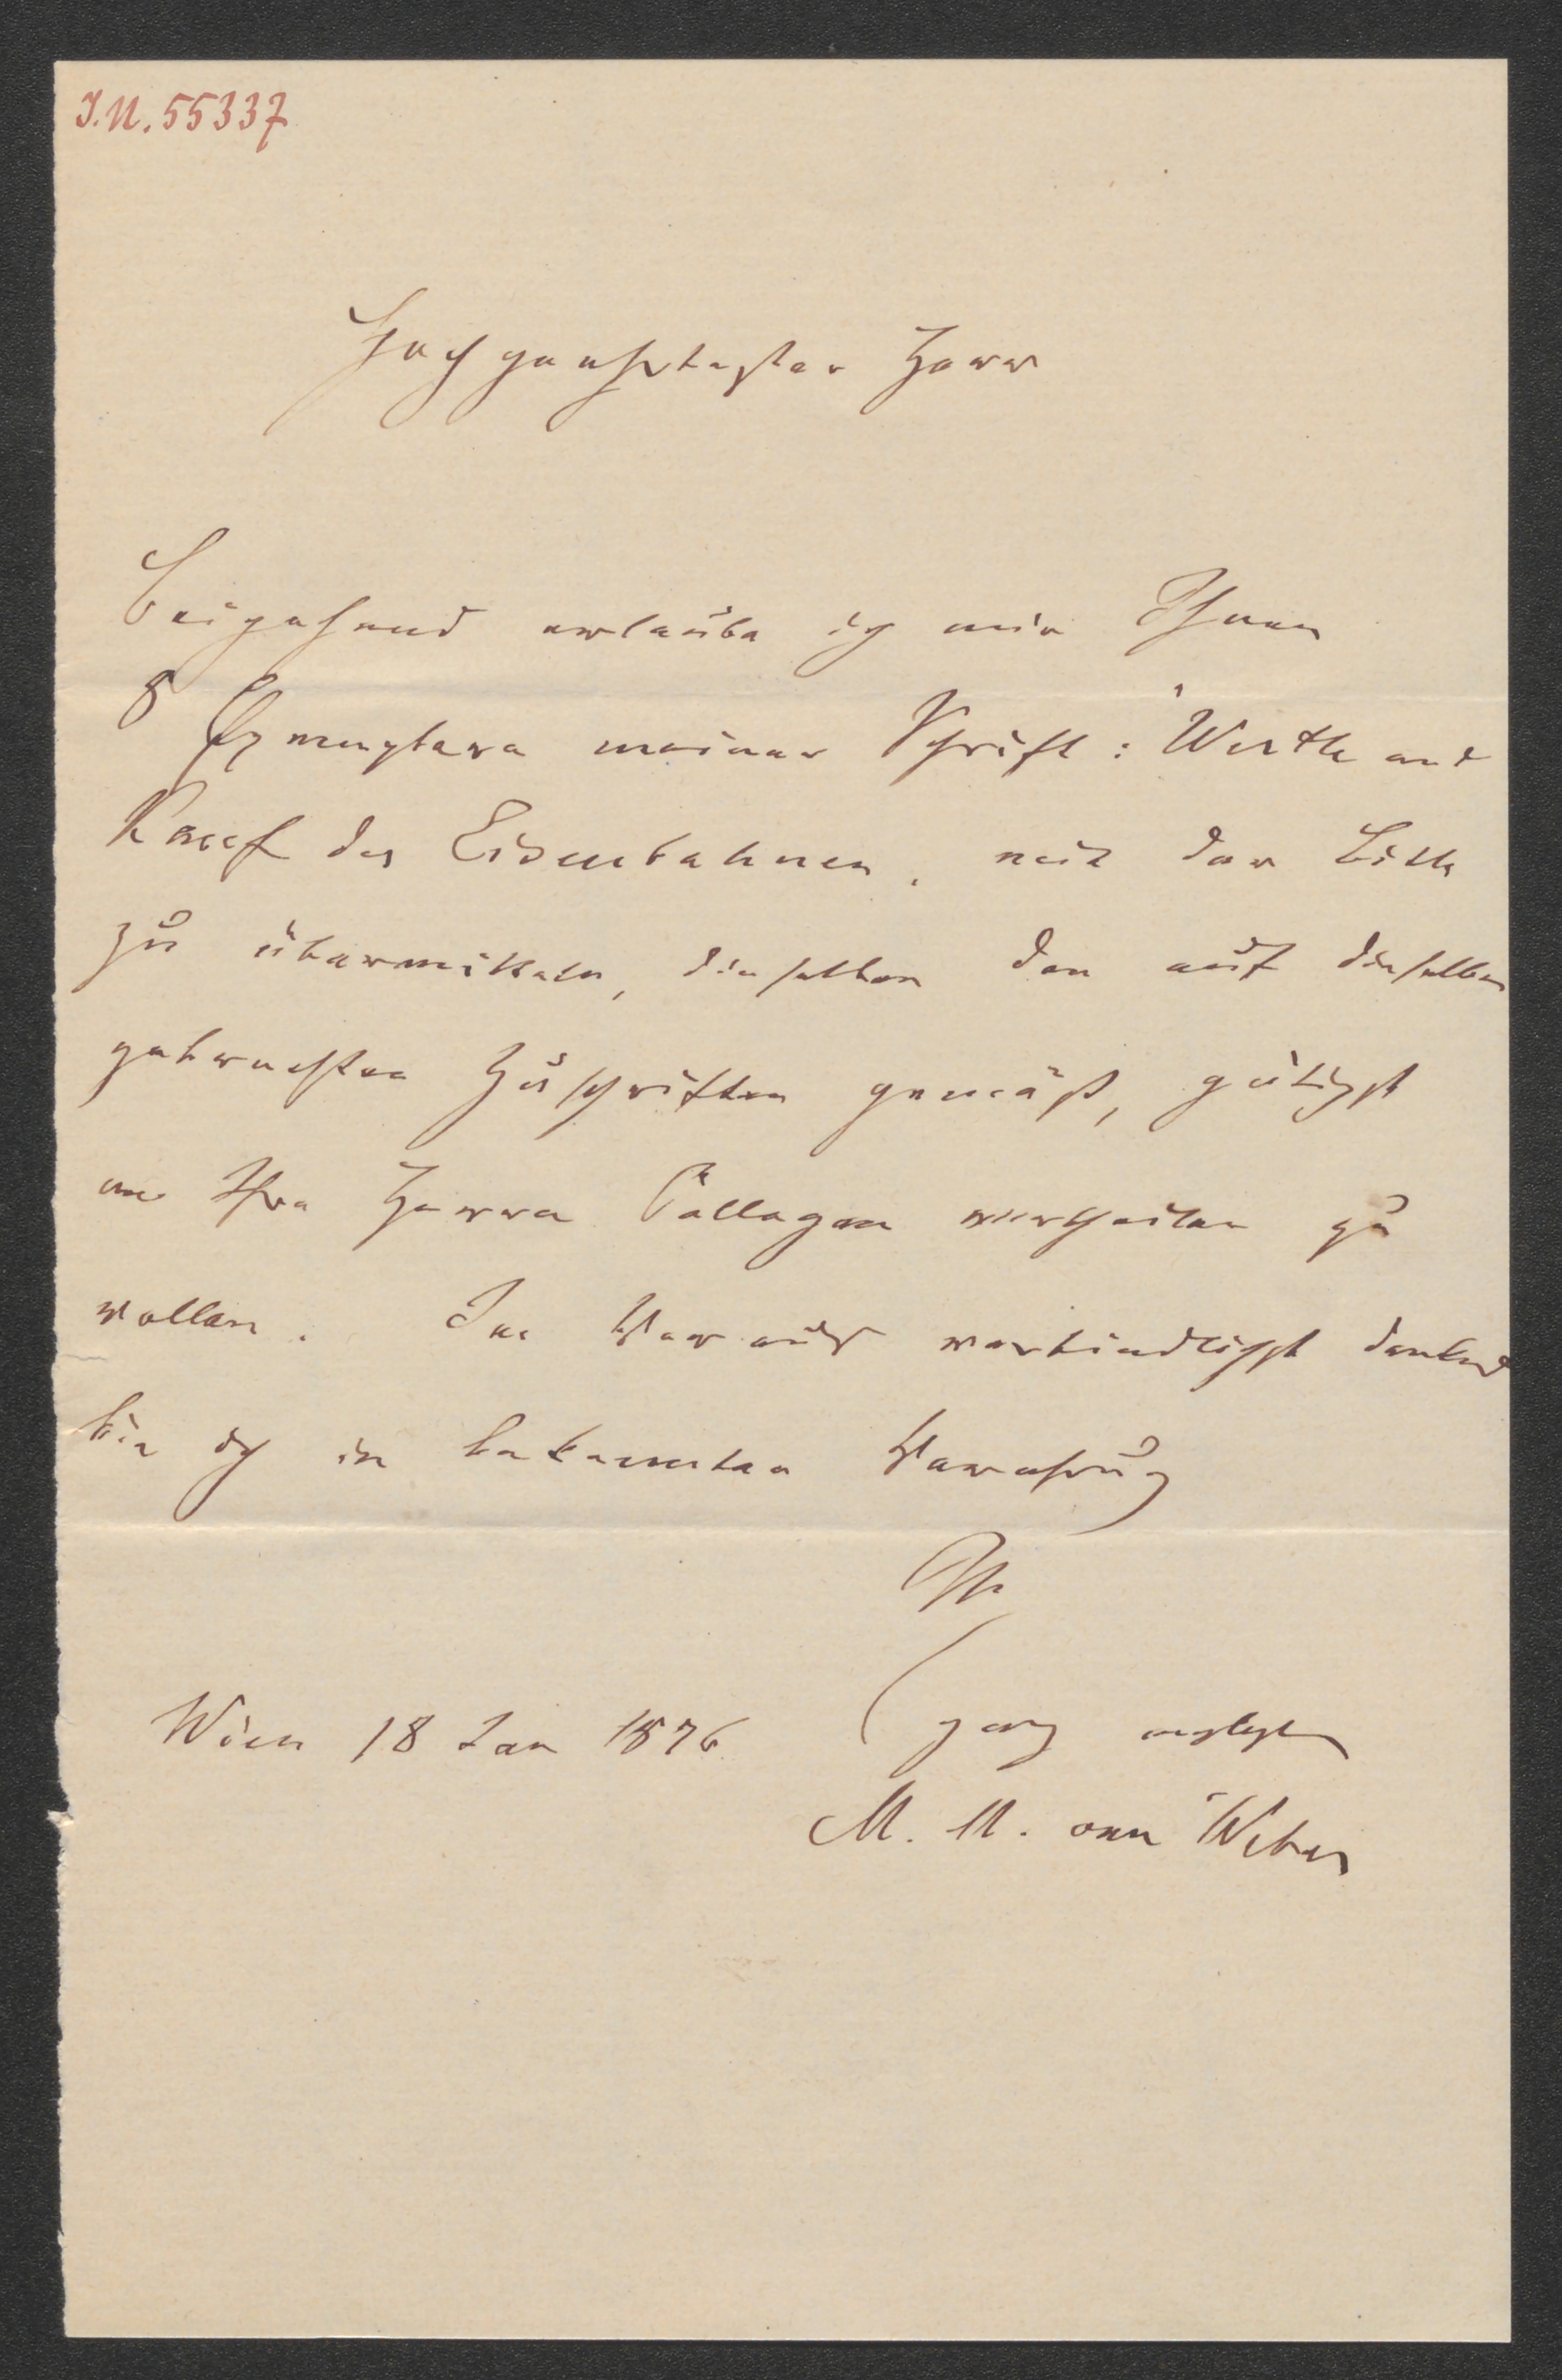 I.N. 55337
Hochgeehrtester Herr
Beigehend erlaube ich mir Ihnen
8 Exemplare meiner Schrift: "Werth und
Kauf der Eisenbahnen, mit der Bitte
zu übermitteln, dieselben den auf dieselben
gebrachten Zuschriften gemäß, gütigst
an Ihre Herren Collegen vertheilen zu
wollen. Im Voraus verbindlichst dankend
bin ich in bekannter Verehrung
Ihr
Wien 18 Jan 1876
ganz ergebenster
M. M. von Weber